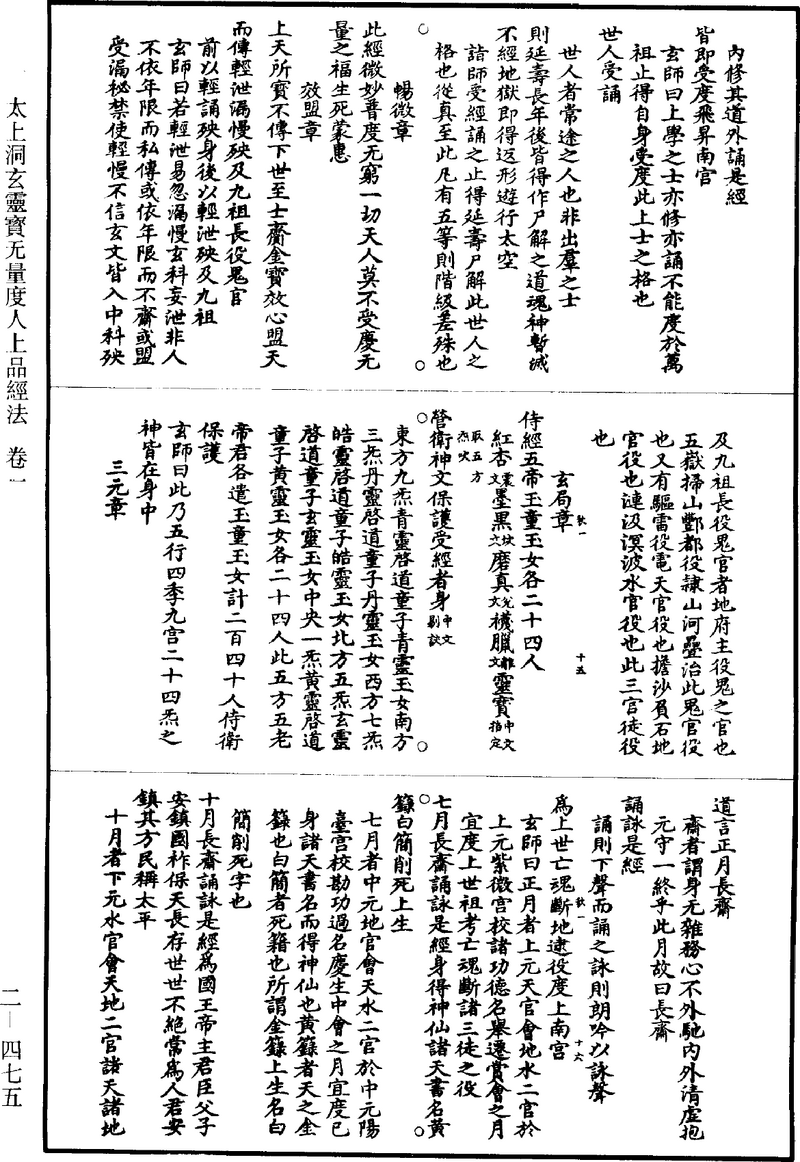 太上洞玄靈寶无量度人上品經法 卷一
二—四七五
內修其道外誦是經
皆即受度飛昇南宮
玄師曰上學之士亦修亦誦不能度於萬
祖止得自身受度此上士之格也
世人受誦
世人者常途之人也非出羣之士
則延壽長年後皆得作尸解之道魂神暫滅
不經地獄即得返形遊行太空
詣師受經誦之止得延壽尸解此世人之
格也從真至此凡有五等則階級差殊也
暢微章
此經微妙普度无窮一切天人莫不受慶无
量之福生死蒙惠
效盟章
上天所寶不傳下世至士齎金寶效心盟天
而傳輕泄漏慢殃及九祖長役鬼官
前以輕誦殃身後以輕泄殃及九祖
玄師曰若輕泄易忽漏慢玄科妄泄非人
不依年限而私傳或依年限而不齋或盟
受漏祕禁使輕慢不信玄文皆入中科殃
及九祖長役鬼官者地府主役鬼之官也
五嶽掃山酆都役隷山河疊治此鬼官役
也又有驅雷役電天官役也擔沙負石地
官役也漣汲溟波水官役也此三官徒役
也
玄局章
侍經五帝玉童玉女各二十四人
紅杏墨黑磨真襪臘靈寶中文指定
取五方炁吹
管衛神文保護受經者身中文別訣
東方九炁青靈啓道童子青靈玉女南方
三炁丹靈啓道童子丹靈玉女西方七炁
皓靈啓道童子皓靈玉女北方五炁玄靈
啓道童子玄靈玉女中央一炁黄靈啓道
童子黄靈玉女各二十四人此五方五老
帝君各遣玉童玉女計二百四十人侍衛
保護
玄師曰此乃五行四季九宮二十四炁之
神皆在身中
三元章
道言正月長齋
齋者謂身无雜務心不外馳内外清虛抱
元守一終乎此月故曰長齋
誦詠是經
誦則下聲而誦之詠則朗吟以詠聲
爲上世亡魂斷地逮役度上南宮
玄師曰正月者上元天官會地水二官於
上元紫微宮校諸功德名舉遷賞會之月
宜度上世祖考亡魂斷諸三徒之役
七月長齋誦詠是經身得神仙諸天書名黄
籙白簡削死上生
七月者中元地官會天水二官於中元陽
臺宮校勘功過名慶生中會之月宜度已
身諸天書名而得神仙也黄籙者天之金
籙也白簡者死籍也所謂金籙上生名白
簡削死字也
十月長齋誦詠是經爲國王帝主君臣父子
安鎮國祚保天長存世世不絶常爲人君安
鎮其方民稱太平
十月者下元水官會天地二官諸天諸地